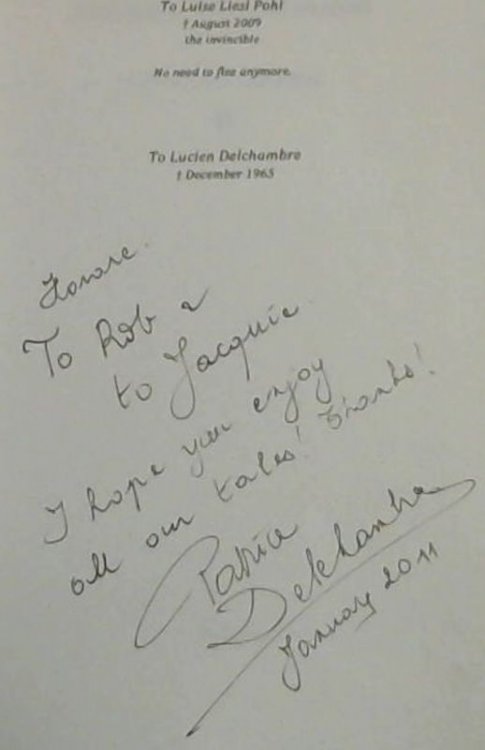 To Luise Liesl Pohl
† August 2009
the invincible
No need to flee anymore.
To Lucien Delchambre
† December 1965
To Rob &
to Jacquie
I hope you enjoy
all our tales! Thanks!
Patrice
Delchambre
January 2011